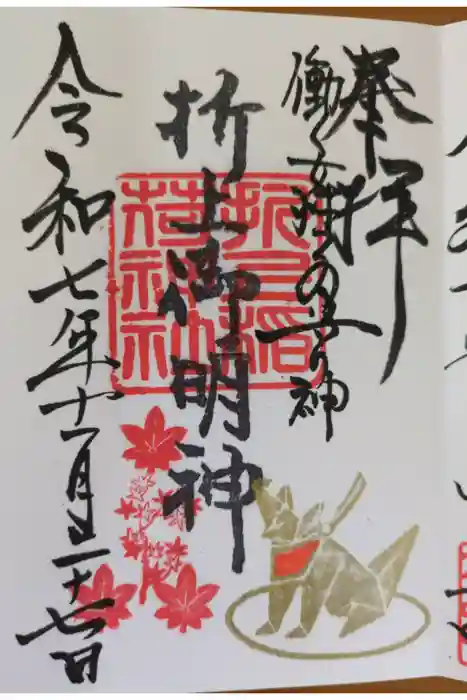 奉拝
働く女性の守り神
折上御明神
折上稲荷神社
令和七年十一月二十七日